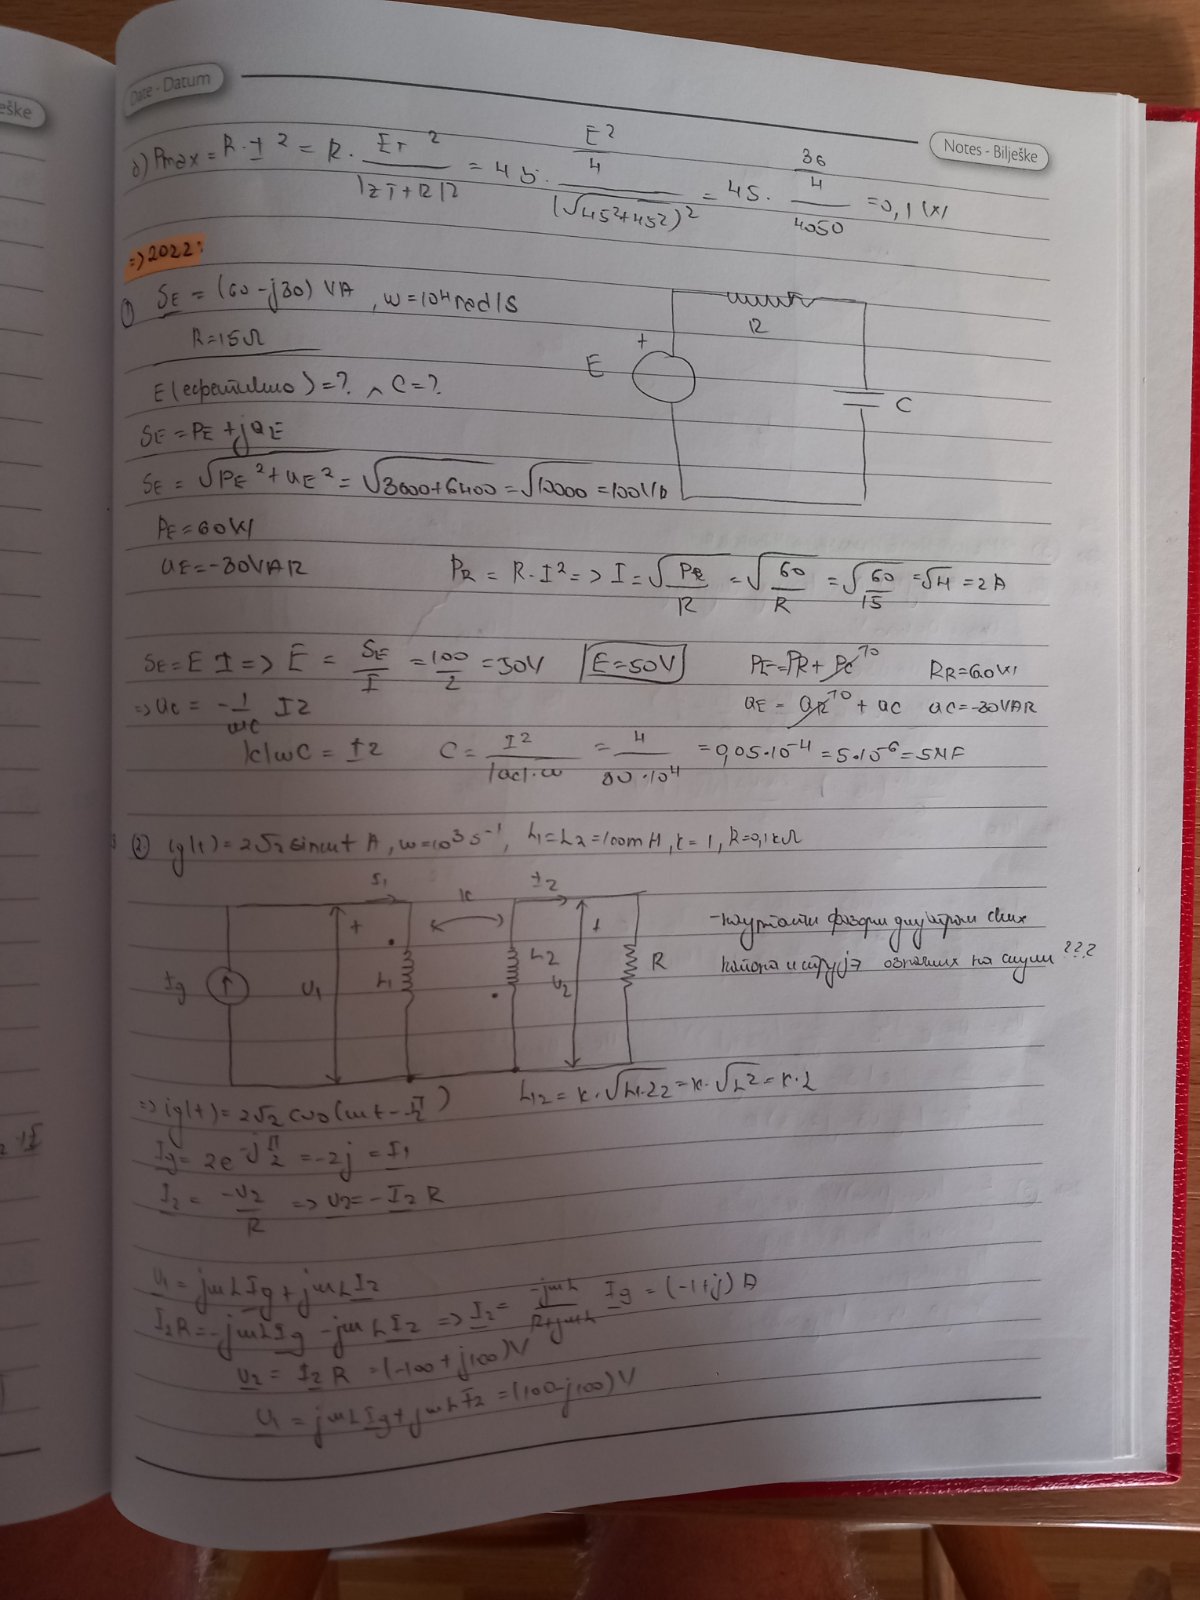 eške
Date - Datum
Notes - Bilješke
δ) Pmax = R · I² = R · ET² / |ZT+R|² = 45 · (E²/4) / (√45²+45²)² = 45 · (36/4) / 4050 = 0,1 W
=> 2022:
① SE = (60 - j30) VA , ω = 10⁴ rad/s
R = 15Ω
E = ? ∧ C = ?
SE = PE + jQE
SE = √PE² + QE² = √3600+6400 = √10000 = 100VA
PE = 60W
QE = -30VAR
PR = R · I² => I = √PR/R = √60/R = √60/15 = √4 = 2A
SE = E I => E = SE/I = 100/2 = 50V E = 50V
PE = PR + PC→0 PR = 60W
=> QC = -1/ωC I2
QE = QR→0 + QC QC = -30VAR
|C|ωC = I2 C = I²/|QC|·ω = 4/80·10⁴ = 0,05·10⁻⁴ = 5·10⁻⁶ = 5MF
E
+
R
C
② ig(t) = 2√2 sinωt A , ω = 10³ s⁻¹ , L1 = L2 = 100mH , k = 1 , R = 0,1kΩ
I1
K
I2
Ig
+
U1
L1
L2
+
U2
R
- фазори
на ???
L12 = k · √L1·L2 = k · √L² = k · L
=> ig(t) = 2√2 cos(ωt - π/2)
Ig = 2e^-jπ/2 = -2j = I1
I2 = -U2/R => U2 = -I2 R
U1 = jωL Ig + jωL I2
I2R = -jωL Ig - jωL I2 => I2 = -jωL/R+jωL Ig = (-1+j) A
U2 = I2 R = (-100 + j100) V
U1 = jωL Ig + jωL I2 = (100-j100) V